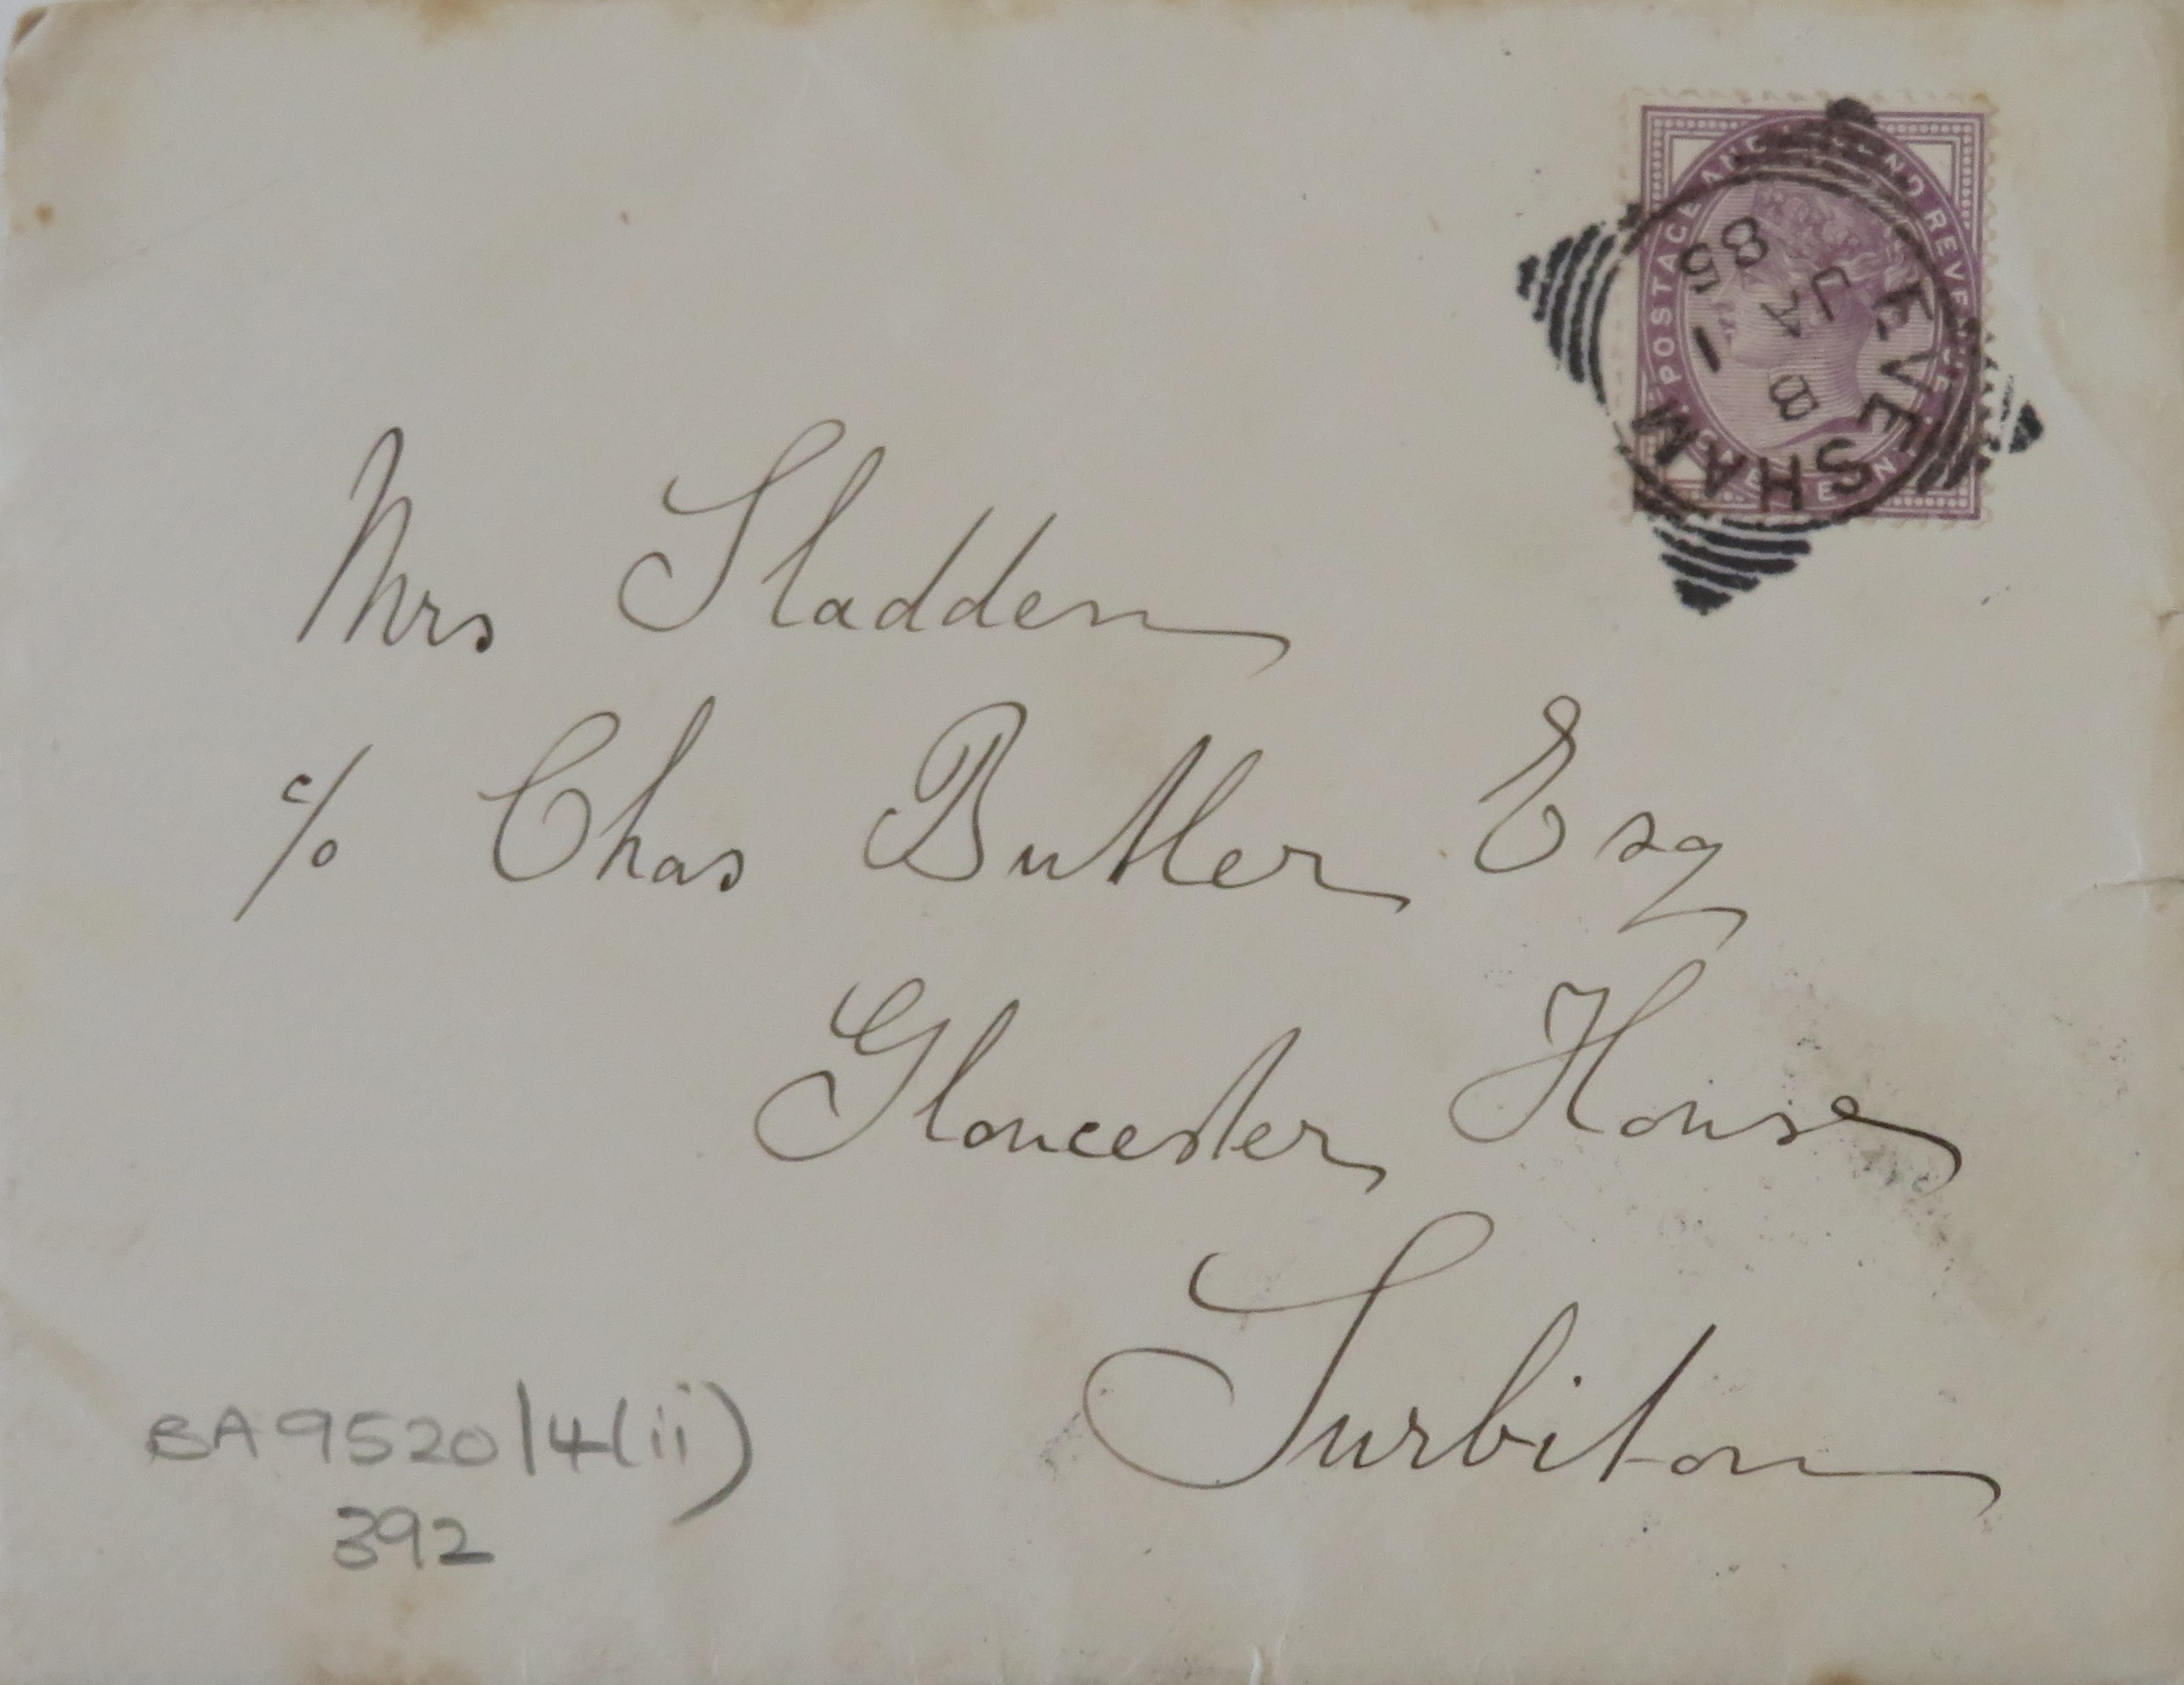 POSTAGE AND INLAND REVENUE
EVESHAM
B
JA 1
85
Mrs Sladden
c/o Chas Butler Esq
Gloucester House
Surbiton
BA9520/4(ii)
392